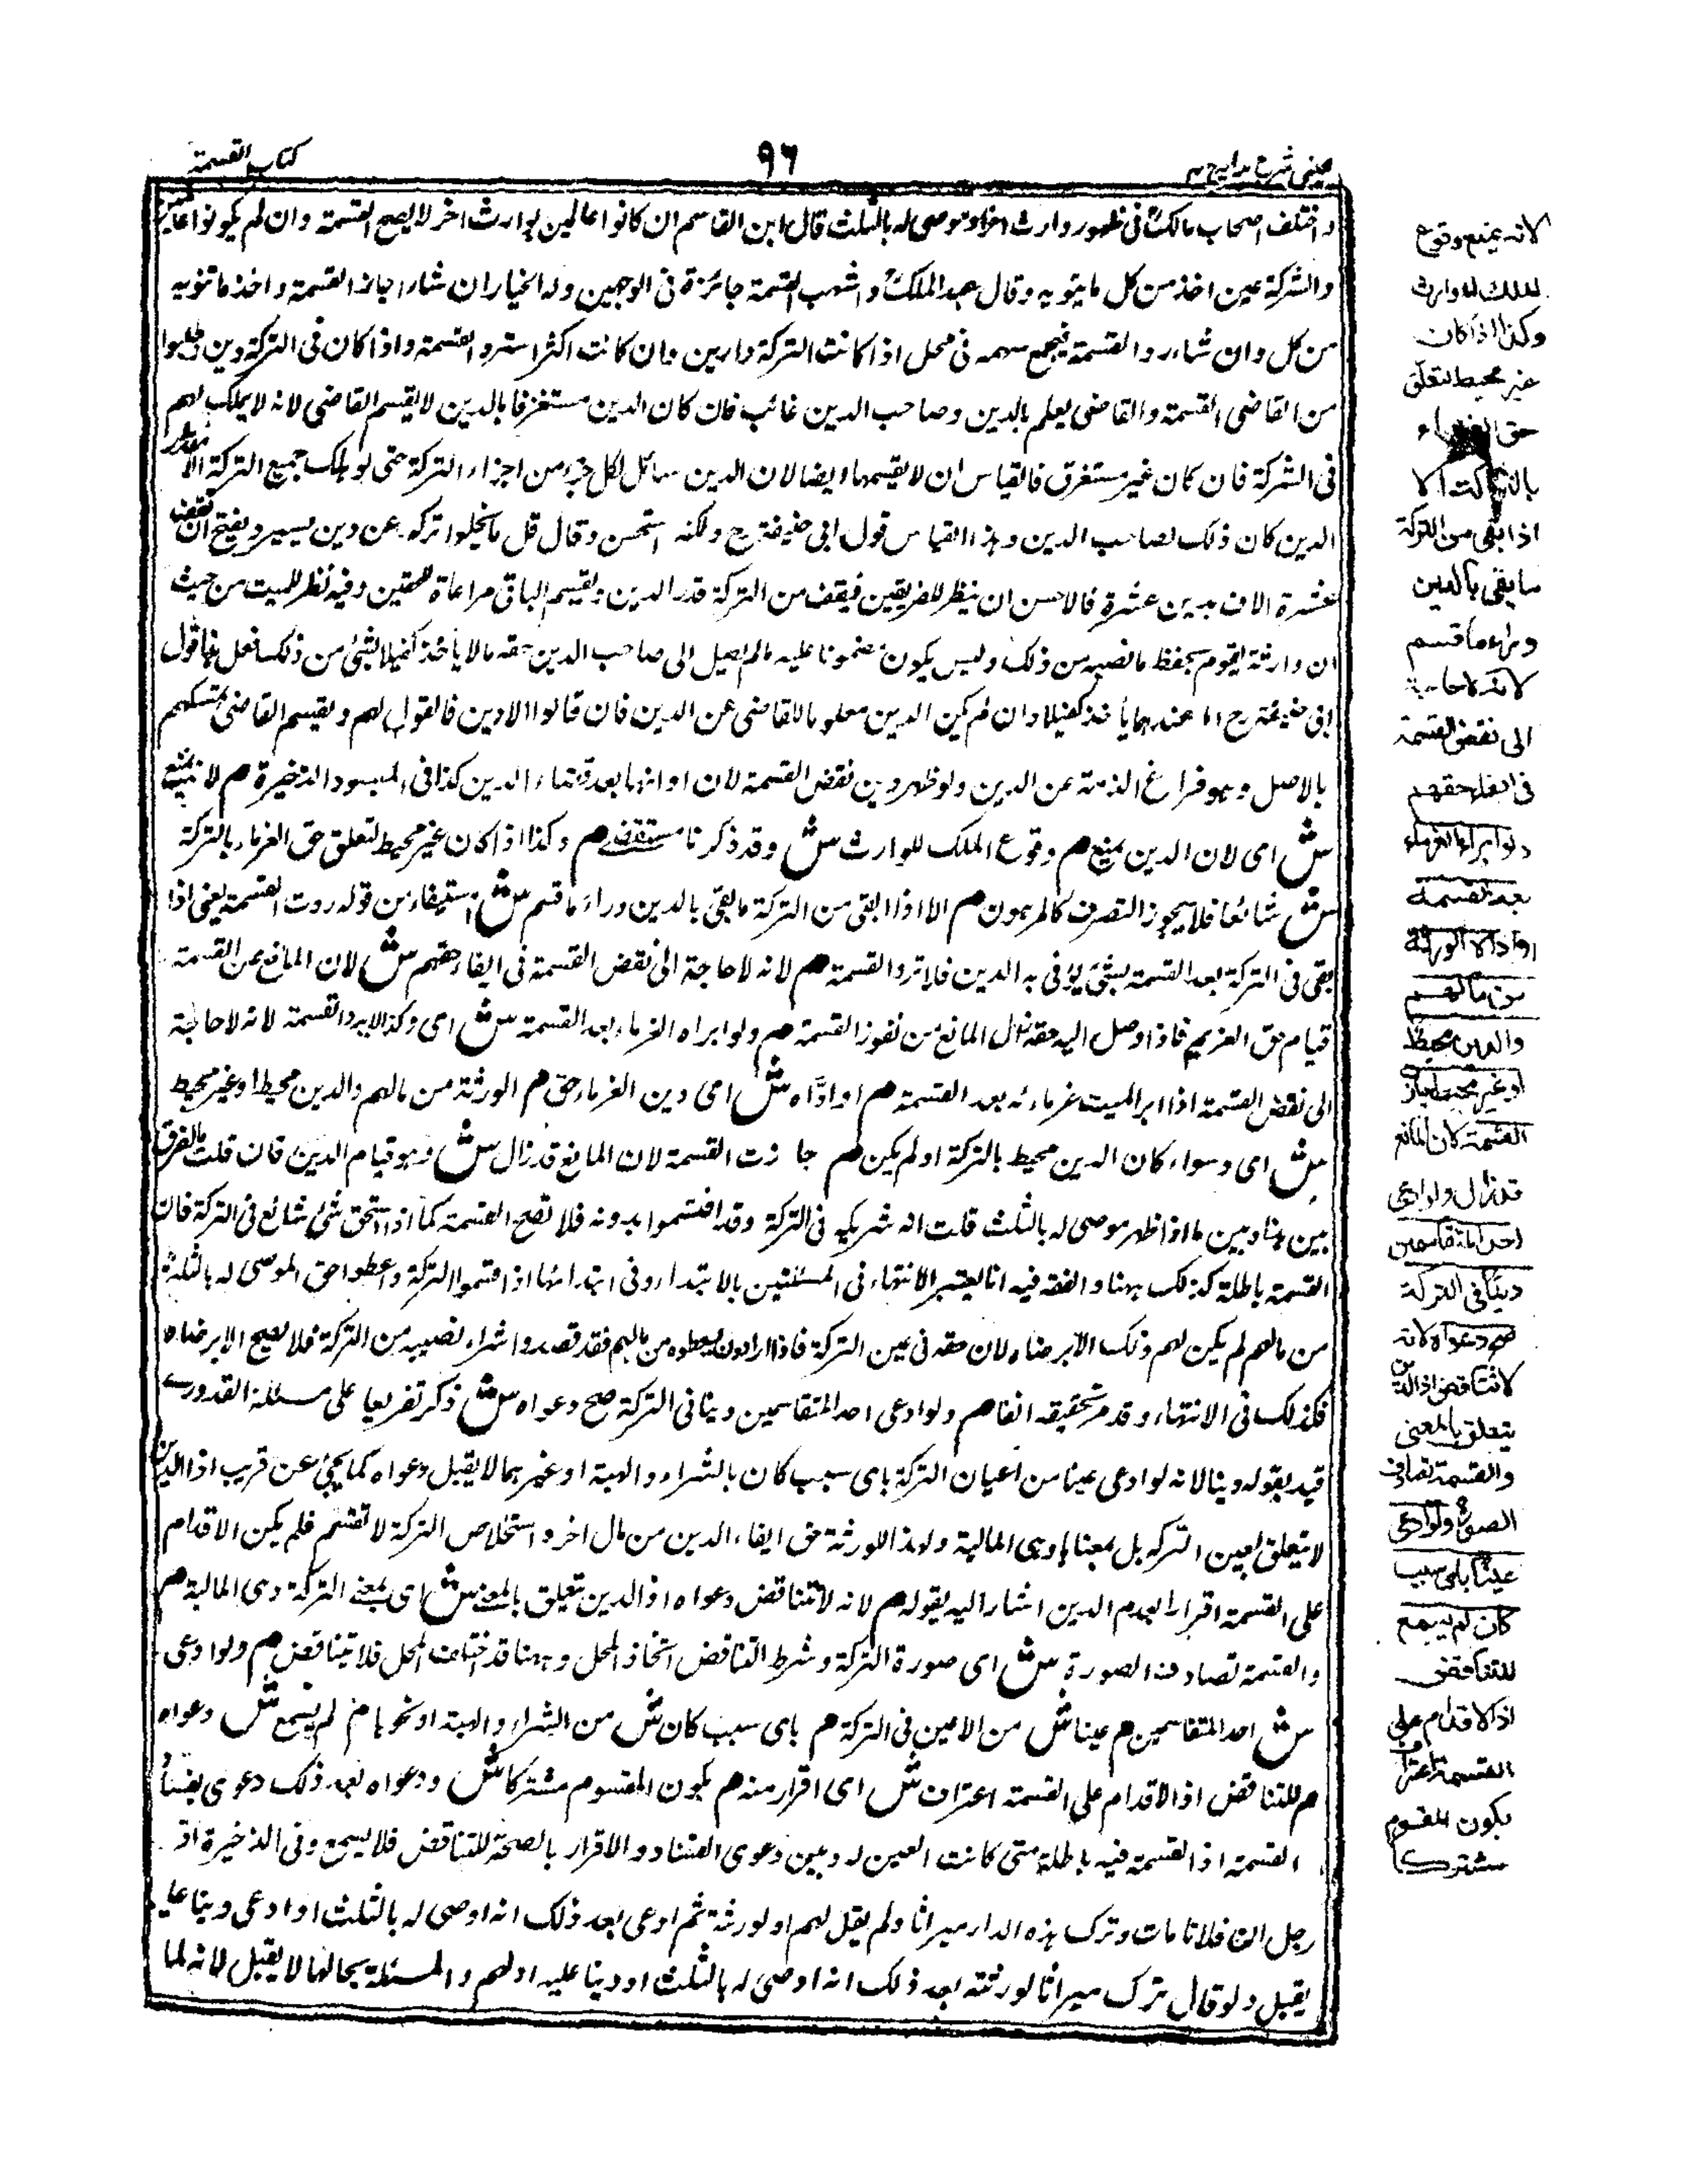 عینی شرح هدایه ج ٣
٩٦
كتاب القسمة
واختلف اصحاب مالكؒ فى ظهور وارث اخر او موصى له بالثلث قال ابن القاسم ان كانوا عالمين بوارث اخر لا يصح القسمة وان لم يكونوا عالمين
والشركة عين اخذ من كل ما ينوبه وقال عبد الملكؒ واشهب القسمة جائزة فى الوجهين وله الخيار ان شاء اجاز القسمة واخذ ما ينوبه
من كل وان شاء رد القسمة فيجمع سهمه فى محل اذا كانت التركة دارين وان كانت اكثر استرد القسمة واذا كان فى التركة دين فطلبوا
من القاضى القسمة والقاضى يعلم بالدين وصاحب الدين غائب فان كان الدين مستغرقا بالدين لا يقسم القاضى لانه لا يملك لهم
فى الشركة فان كان غير مستغرق فالقياس ان لا يقسمها ايضا لان الدين سائل لكل جزء من اجزاء التركة حتى لو هلك جميع التركة الا مقدار
الدين كان ذلك لصاحب الدين وهذا القياس قول ابى حنيفة رح ولكنه استحسن وقال قل ما يخلوا تركه عن دين يسير ويقبح ان نقض
عشرة الاف بدين عشرة فالاحسن ان ينظر للفريقين فيقف من التركة قدر الدين ويقسم الباقى مراعاة للحقين وفيه نظر للميت من حيث
ان وارثه يقوم بحفظ ما نصيبه من ذلك وليس يكون مضمونا عليه مالم يصل الى صاحب الدين حقه مالا يأخذ كفيلا لشئ من ذلك فعل هذا قول
ابى حنيفة رح اما عندهما يأخذ كفيلا وان لم يكن الدين معلوما للقاضى عن الدين فان قالوا الا دين فالقول لهم ويقسم القاضى لتمسكهم
بالاصل وهو فراغ الذمة عن الدين ولو ظهر دين نقض القسمة لان اوانها بعد قضاء الدين كذا فى المبسوط والذخيرة م لانه يمنع
ش اى لان الدين يمنع م وقوع الملك للوارث ش وقد ذكرنا مستقصے م وكذا اذا كان غير محيط لتعلق حق الغرماء بالتركة
ش شائعا فلا يجوز التصرف كالمرهون م الا اذا بقى من التركة ما يفى بالدين وراء ما قسم ش استيفاء من قوله ردت القسمة يعنى اذا
بقى فى التركة بعد القسمة شئ يوفى به الدين فلا ترد القسمة م لانه لا حاجة الى نقض القسمة فى ايفاء حقهم ش لان المانع من القسمة
قيام حق الغريم فاذا وصل اليه حقه زال المانع من نفوذ القسمة م ولو ابراه الغرماء بعد القسمة ش اى وكذا لا يرد القسمة لانه لا حاجة
الى نقض القسمة اذا ابرا الميت غرماءه بعد القسمة م او ادّاه ش اى دين الغرماء حق م الورثة من مالهم والدين محيط او غير محيط
ش اى وسواء كان الدين محيط بالتركة او لم يكن م جازت القسمة لان المانع قد زال ش وهو قيام الدين فان قلت ما الفرق
بين هذا وبين ما اذا ظهر موصى له بالثلث قلت انه شريك فى التركة وقد اقتسموا بدونه فلا تصح القسمة كما اذا استحق شئ شائع فى التركة فان
القسمة باطلة كذلك ههنا والفقه فيه انا نعتبر الانتهاء فى المسئلتين بالابتداء وفى ابتدائها اذا اقتسموا التركة واعطوا حق الموصى له بالثلث
من مالهم لم يكن لهم ذلك الا برضاه لان حقه فى عين التركة فاذا ارادوا ان يعطوه من مالهم فقد قصدوا شراء نصيبه من التركة فلا يصح الا برضاه
فكذلك فى الانتهاء وقد مر تحقيقه انفا م ولو ادعى احد المتقاسمين دينا فى التركة صح دعواه ش ذكر تفريعا على مسئلة القدورے
قيد بقوله دينا لانه لو ادعى عينا من اعيان التركة باى سبب كان بالشراء والهبة او غيرهما لا يقبل دعواه كما يجئ عن قريب اذا الدين
لا يتعلق بعين التركه بل بمعناها وهى المالية ولهذا للورثة حق ايفاء الدين من مال اخر واستخلاص التركة لا تقسم فلم يكن الاقدام
على القسمة اقرارا بعدم الدين اشار اليه بقوله م لانه لا تناقض دعواه اذ الدين تعلق بالمعنے ش اى بمعنے التركة وهى المالية م
والقسمة تصادف الصورة ش اى صورة التركة وشرط التناقض اتحاد المحل وههنا قد اختلف المحل فلا يتناقض م ولو ادعى
ش احد المتقاسمين م عينا ش من الاعين فى التركة م باى سبب كان ش من الشراء والهبة او نحوها م لم يسمع ش دعواه
م للتناقض اذ الاقدام على القسمة اعتراف ش اى اقرار منه م بكون المقسوم مشتركا ش ودعواه بعد ذلك دعوى بفساد
القسمة اذ القسمة فيه باطلة متى كانت العين له وبين دعوى الفساد والاقرار بالصحة للتناقض فلا يسمع وفى الذخيرة اذ
رجل ان فلانا مات وترك هذه الدار ميراثا ولم يقل لهم او لورثة ثم ادعى بعد ذلك انه اوصى له بالثلث او ادعى دينا عليه
يقبل ولو قال ترك ميراثا لورثته بعد ذلك انه اوصى له بالثلث او دينا عليه او لهم والمسئلة بحالها لا يقبل لانه لما
لانه يمنع وقوع
الملك للوارث
وكذا اذا كان
غير محيط لتعلق
حق الغرماء
بالتركة الا
اذا بقى من التركة
ما يفى بالدين
وراء ما قسم
لانه لا حاجة
الى نقض القسمة
فى ايفاء حقهم
ولو ابراه الغرماء
بعد القسمة
او اداه الورثة
من مالهم
والدين محيط
او غير محيط جازت
القسمة لان المانع
قد زال ولو ادعى
احد المتقاسمين
دينا فى التركة
صح دعواه لانه
لا تناقض اذ الدين
يتعلق بالمعنى
والقسمة تصادف
الصورة ولو ادعى
عينا باى سبب
كان لم يسمع
للتناقض
اذ الاقدام على
القسمة اعتراف
بكون المقسوم
مشتركا